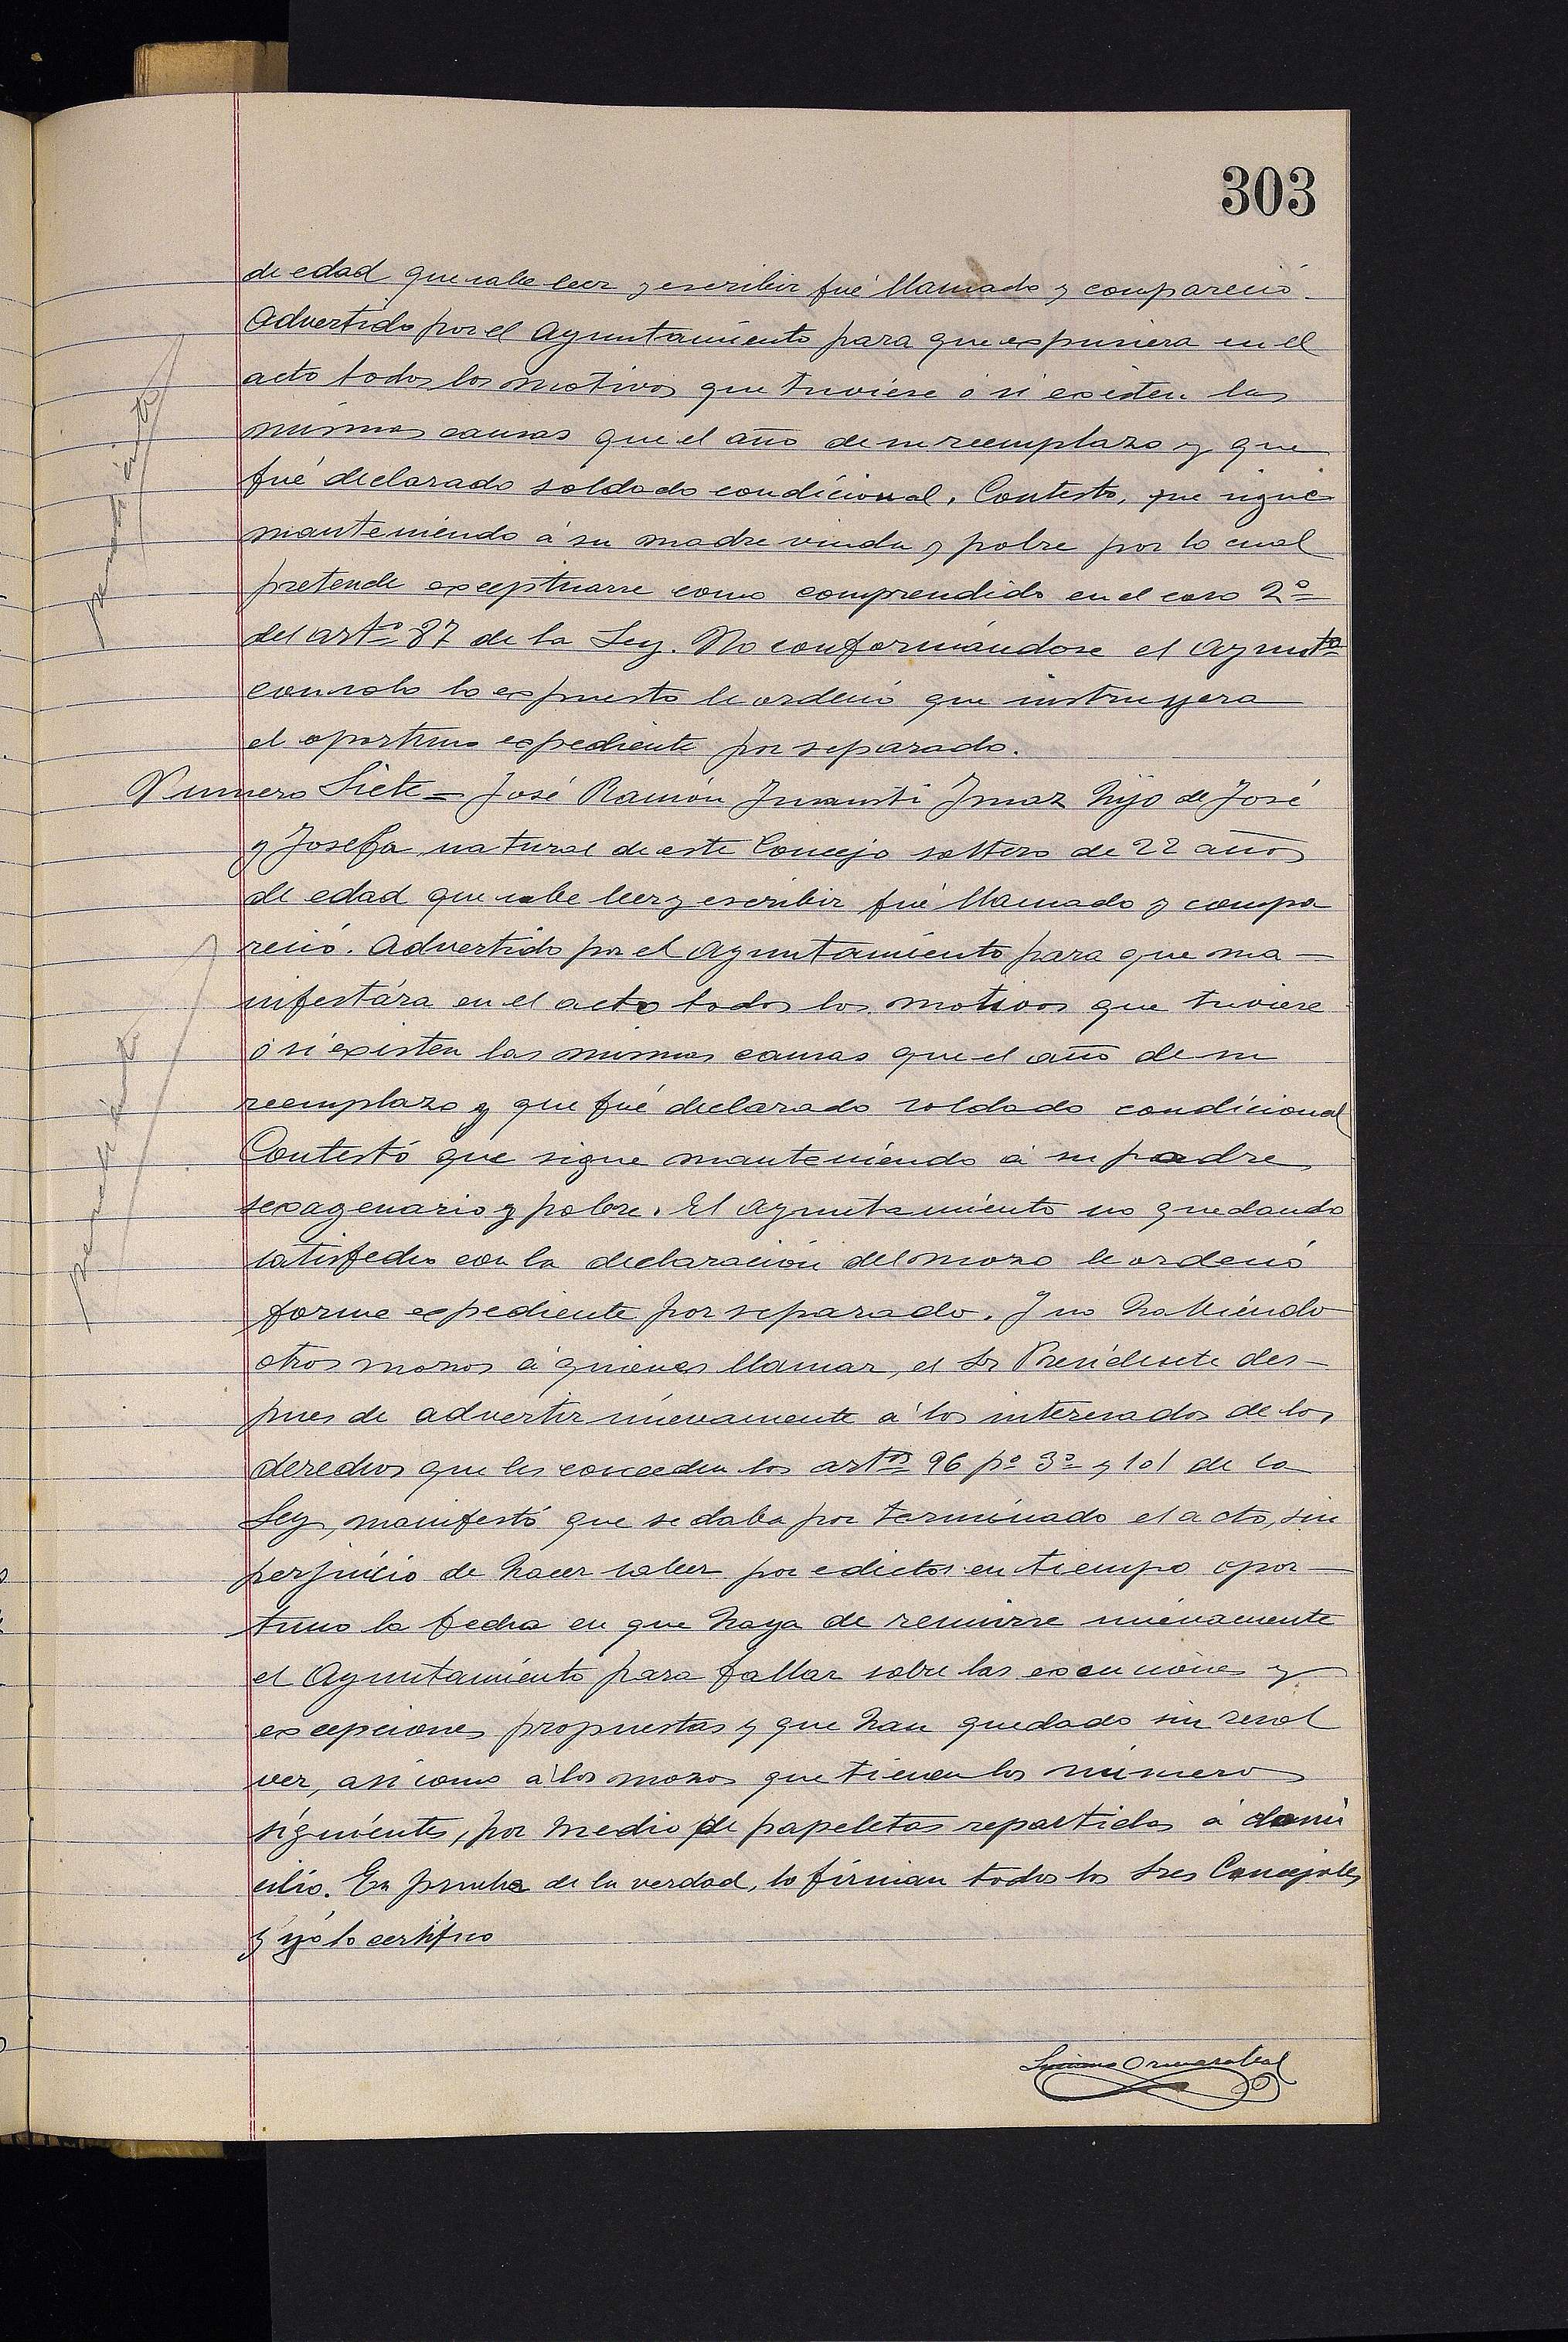 303
de edad que sabe leer y escribir fué llamado y compareció.
Advertido por el Ayuntamiento para que expusiera en el
acto todos los motivos que tuviere ó si existen las
mismas causas que el año de su reemplazo y que
fué declarado soldado condicional. Contesto, que sigue
manteniendo á su madre viuda y pobre por lo cual
pretende exceptuarse como comprendido en el caso 2º
del artº 87 de la Ley. No conformándose el Ayuntº
con solo lo expuesto le ordenó que instruyera
el oportuno expediente por separado.
Numero Siete = José Ramón Insausti Imaz hijo de José
y Josefa, natural de este Concejo soltero de 22 años
de edad que sabe leer y escribir fué llamado y compa
reció. Advertido por el Ayuntamiento para que ma-
nifestára en el acto todos los motivos que tuviere
ó si existen las mismas causas que el año de su
reemplazo y que fué declarado soldado condicional
Contestó que sigue manteniendo á su padre
sexagenario y pobre. El Ayuntamiento no quedando
satisfecho con la declaración del mozo le ordenó
forme expediente por separado. Y no habiendo
otros mozos á quienes llamar, el Sr Presidente des-
pues de advertir nuevamente á los interesados de los
derechos que les conceden los artos 96 pº 3º y 101 de la
Ley, manifestó que se daba por terminado el acto, sin
perjuicio de hacer saber por edictos en tiempo opor-
tuno la fecha en que haya de reunirse nuevamente
el Ayuntamiento para fallar sobre las exenciones y
excepciones propuestas y que han quedado sin resol
ver, asi como á los mozos que tienen los numeros
siguientes, por medio de papeletas repartidas á domi
cilio. En prueba de la verdad, lo firman todos los Sres Concejales
y yó lo certifico
pendiente
pendiente